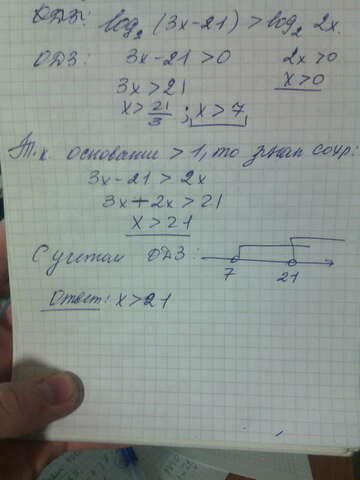 ОДЗ: log₂ (3x-21) > log₂ 2x.
ОДЗ: 3x-21 >0 2x>0
3x>21 x>0
x> 21/3 ; x>7
Т.к основание >1, то знак сохр:
3x-21 > 2x
3x+2x >21
x>21
С учетом ОДЗ:
7 21
Ответ: x>21